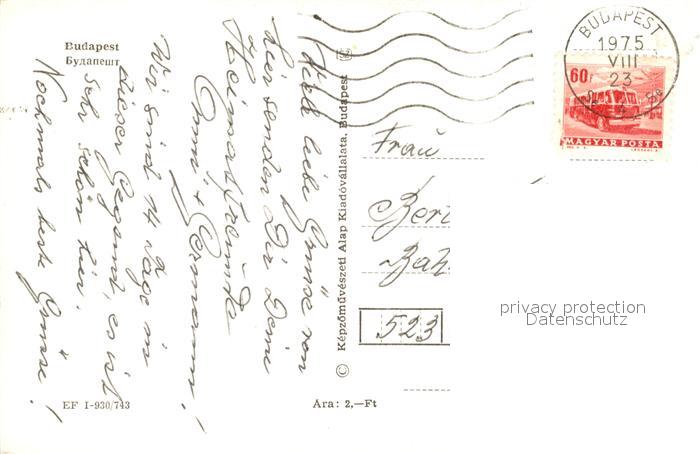 Budapest
Будапешт
Viele liebe Grüsse von
hier senden Dir Deine
Heimatfreunde
Omi + Hermann!
Wir sind 14 Tage in
dieser Gegend, es ist
sehr schön hier.
Nochmals beste Grüsse!
EF I-930/743
Ára: 2,—Ft
© Képzőművészeti Alap Kiadóvállalata, Budapest
Frau
Bah
523
BUDAPEST
1975
VIII
23
60f
MAGYAR POSTA
privacy protection
Datenschutz